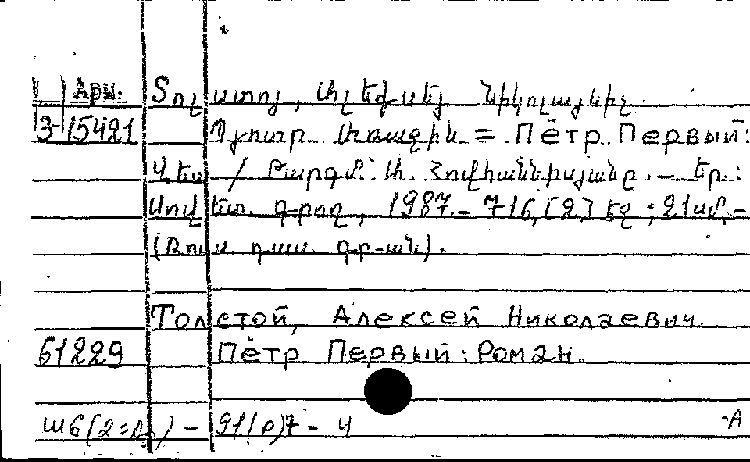 Арм. Տոլստոյ, Ալեքսեյ Նիկոլաևիչ
3-15421 Պյոտր Առաջին = Пётр Первый:
Վեպ / Թարգմ. Ա. Հովհաննիսյանը. – Եր.:
Սովետ. գրող, 1987. – 716,[2] էջ; 21սմ. –
(Ռուս դաս. գր-ան).
Толстой, Алексей Николаевич
61229 Пётр Первый: Роман.
Ш6(2=Р) – 91(Р)7 – 4 -А